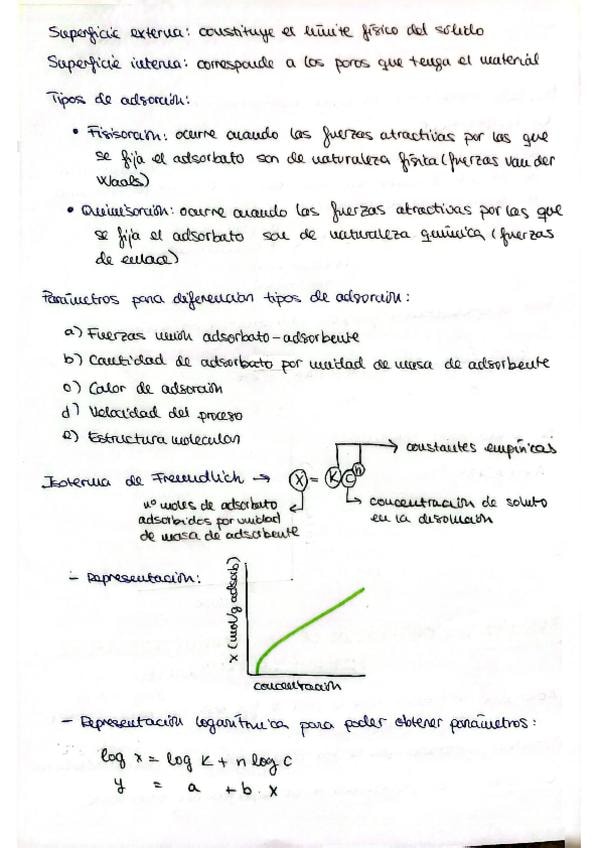 Superficie externa: constituye el límite físico del sólido
Superficie interna: corresponde a los poros que tenga el material
Tipos de adsorción:
• Fisisorción: ocurre cuando las fuerzas atractivas por las que
se fija el adsorbato son de naturaleza física (fuerzas van der
Waals)
• Quimisorción: ocurre cuando las fuerzas atractivas por las que
se fija el adsorbato son de naturaleza química (fuerzas
de enlace)
Parámetros para diferenciar tipos de adsorción:
a) Fuerzas unión adsorbato-adsorbente
b) Cantidad de adsorbato por unidad de masa de adsorbente
c) Calor de adsorción
d) Velocidad del proceso
e) Estructura molecular
constantes empíricas
Isoterma de Freundlich → X = K C^n
nº moles de adsorbato
adsorbidos por unidad
de masa de adsorbente
concentración de soluto
en la disolución
- Representación:
x (mol/g adsorb)
concentración
- Representación logarítmica para poder obtener parámetros:
log x = log K + n log C
y = a + b · x